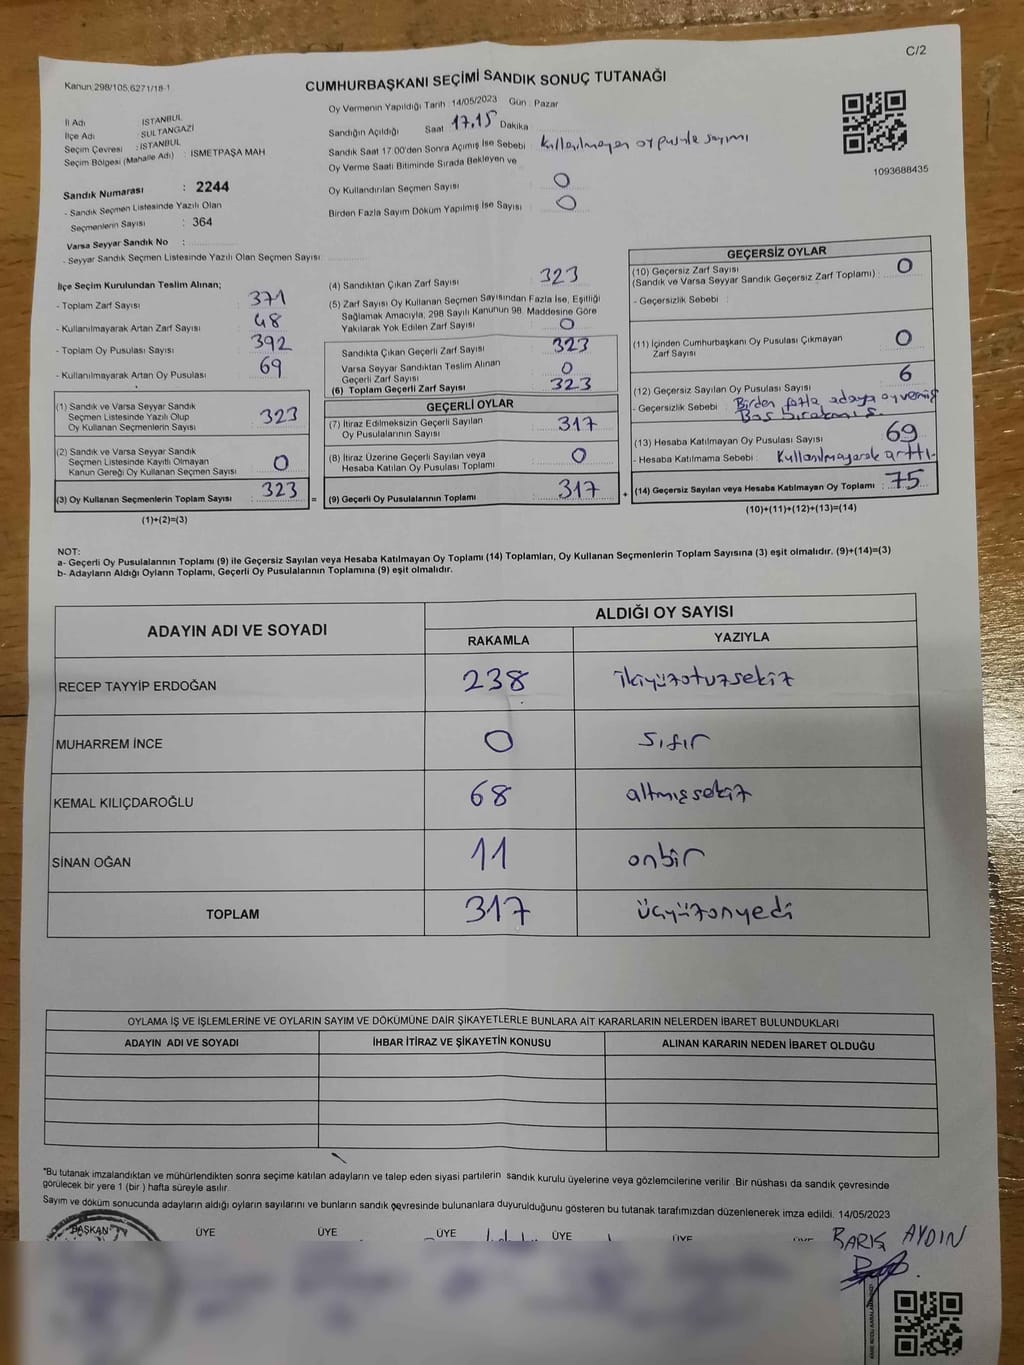 C/2
Kanun 298/105,6271/18-1
CUMHURBAŞKANI SEÇİMİ SANDIK SONUÇ TUTANAĞI
İl Adı : İSTANBUL
İlçe Adı : SULTANGAZİ
Seçim Çevresi : İSTANBUL
Seçim Bölgesi (Mahalle Adı) : İSMETPAŞA MAH
Sandık Numarası : 2244
- Sandık Seçmen Listesinde Yazılı Olan
Seçmenlerin Sayısı : 364
Varsa Seyyar Sandık No :
- Seyyar Sandık Seçmen Listesinde Yazılı Olan Seçmen Sayısı:
Oy Vermenin Yapıldığı Tarih : 14/05/2023 Gün : Pazar
Sandığın Açıldığı Saat 17.15 Dakika
Sandık Saat 17.00'den Sonra Açımış İse Sebebi Kullanılmayan oy pusula sayımı
Oy Verme Saati Bitiminde Sırada Bekleyen ve
Oy Kullandırılan Seçmen Sayısı 0
Birden Fazla Sayım Döküm Yapılmış İse Sayısı 0
1093688435
İlçe Seçim Kurulundan Teslim Alınan;
- Toplam Zarf Sayısı : 371
- Kullanılmayarak Artan Zarf Sayısı : 48
- Toplam Oy Pusulası Sayısı : 392
- Kullanılmayarak Artan Oy Pusulası : 69
(1) Sandık ve Varsa Seyyar Sandık
Seçmen Listesinde Yazılı Olup
Oy Kullanan Seçmenlerin Sayısı : 323
(2) Sandık ve Varsa Seyyar Sandık
Seçmen Listesinde Kayıtlı Olmayan
Kanun Gereği Oy Kullanan Seçmen Sayısı : 0
(3) Oy Kullanan Seçmenlerin Toplam Sayısı : 323 =
(1)+(2)=(3)
(4) Sandıktan Çıkan Zarf Sayısı : 323
(5) Zarf Sayısı Oy Kullanan Seçmen Sayısından Fazla İse, Eşitliği
Sağlamak Amacıyla, 298 Sayılı Kanunun 98. Maddesine Göre
Yakılarak Yok Edilen Zarf Sayısı : 0
Sandıkta Çıkan Geçerli Zarf Sayısı : 323
Varsa Seyyar Sandıktan Teslim Alınan
Geçerli Zarf Sayısı : 0
(6) Toplam Geçerli Zarf Sayısı : 323
GEÇERLİ OYLAR
(7) İtiraz Edilmeksizin Geçerli Sayılan
Oy Pusulalarının Sayısı : 317
(8) İtiraz Üzerine Geçerli Sayılan veya
Hesaba Katılan Oy Pusulası Toplamı : 0
(9) Geçerli Oy Pusulalarının Toplamı : 317 +
GEÇERSİZ OYLAR
(10) Geçersiz Zarf Sayısı
(Sandık ve Varsa Seyyar Sandık Geçersiz Zarf Toplamı) : 0
- Geçersizlik Sebebi :
(11) İçinden Cumhurbaşkanı Oy Pusulası Çıkmayan
Zarf Sayısı : 0
(12) Geçersiz Sayılan Oy Pusulası Sayısı : 6
- Geçersizlik Sebebi : Birden fazla adaya oy vermiş
Boş bırakmış.
(13) Hesaba Katılmayan Oy Pusulası Sayısı : 69
- Hesaba Katılmama Sebebi : Kullanılmayarak arttı.
(14) Geçersiz Sayılan veya Hesaba Katılmayan Oy Toplamı : 75
(10)+(11)+(12)+(13)=(14)
NOT:
a- Geçerli Oy Pusulalarının Toplamı (9) ile Geçersiz Sayılan veya Hesaba Katılmayan Oy Toplamı (14) Toplamları, Oy Kullanan Seçmenlerin Toplam Sayısına (3) eşit olmalıdır. (9)+(14)=(3)
b- Adayların Aldığı Oyların Toplamı, Geçerli Oy Pusulalarının Toplamına (9) eşit olmalıdır.
ADAYIN ADI VE SOYADI
ALDIĞI OY SAYISI
RAKAMLA YAZIYLA
RECEP TAYYİP ERDOĞAN 238 ikiyüzotuzsekiz
MUHARREM İNCE 0 sıfır
KEMAL KILIÇDAROĞLU 68 altmışsekiz
SİNAN OĞAN 11 onbir
TOPLAM 317 üçyüzonyedi
OYLAMA İŞ VE İŞLEMLERİNE VE OYLARIN SAYIM VE DÖKÜMÜNE DAİR ŞİKAYETLERLE BUNLARA AİT KARARLARIN NELERDEN İBARET BULUNDUKLARI
ADAYIN ADI VE SOYADI İHBAR İTİRAZ VE ŞİKAYETİN KONUSU ALINAN KARARIN NEDEN İBARET OLDUĞU
*Bu tutanak imzalandıktan ve mühürlendikten sonra seçime katılan adayların ve talep eden siyasi partilerin sandık kurulu üyelerine veya gözlemcilerine verilir. Bir nüshası da sandık çevresinde
görülecek bir yere 1 (bir ) hafta süreyle asılır.
Sayım ve döküm sonucunda adayların aldığı oyların sayılarını ve bunların sandık çevresinde bulunanlara duyurulduğunu gösteren bu tutanak tarafımızdan düzenlenerek imza edildi. 14/05/2023
BAŞKAN ÜYE ÜYE ÜYE ÜYE ÜYE
BARIŞ AYDIN